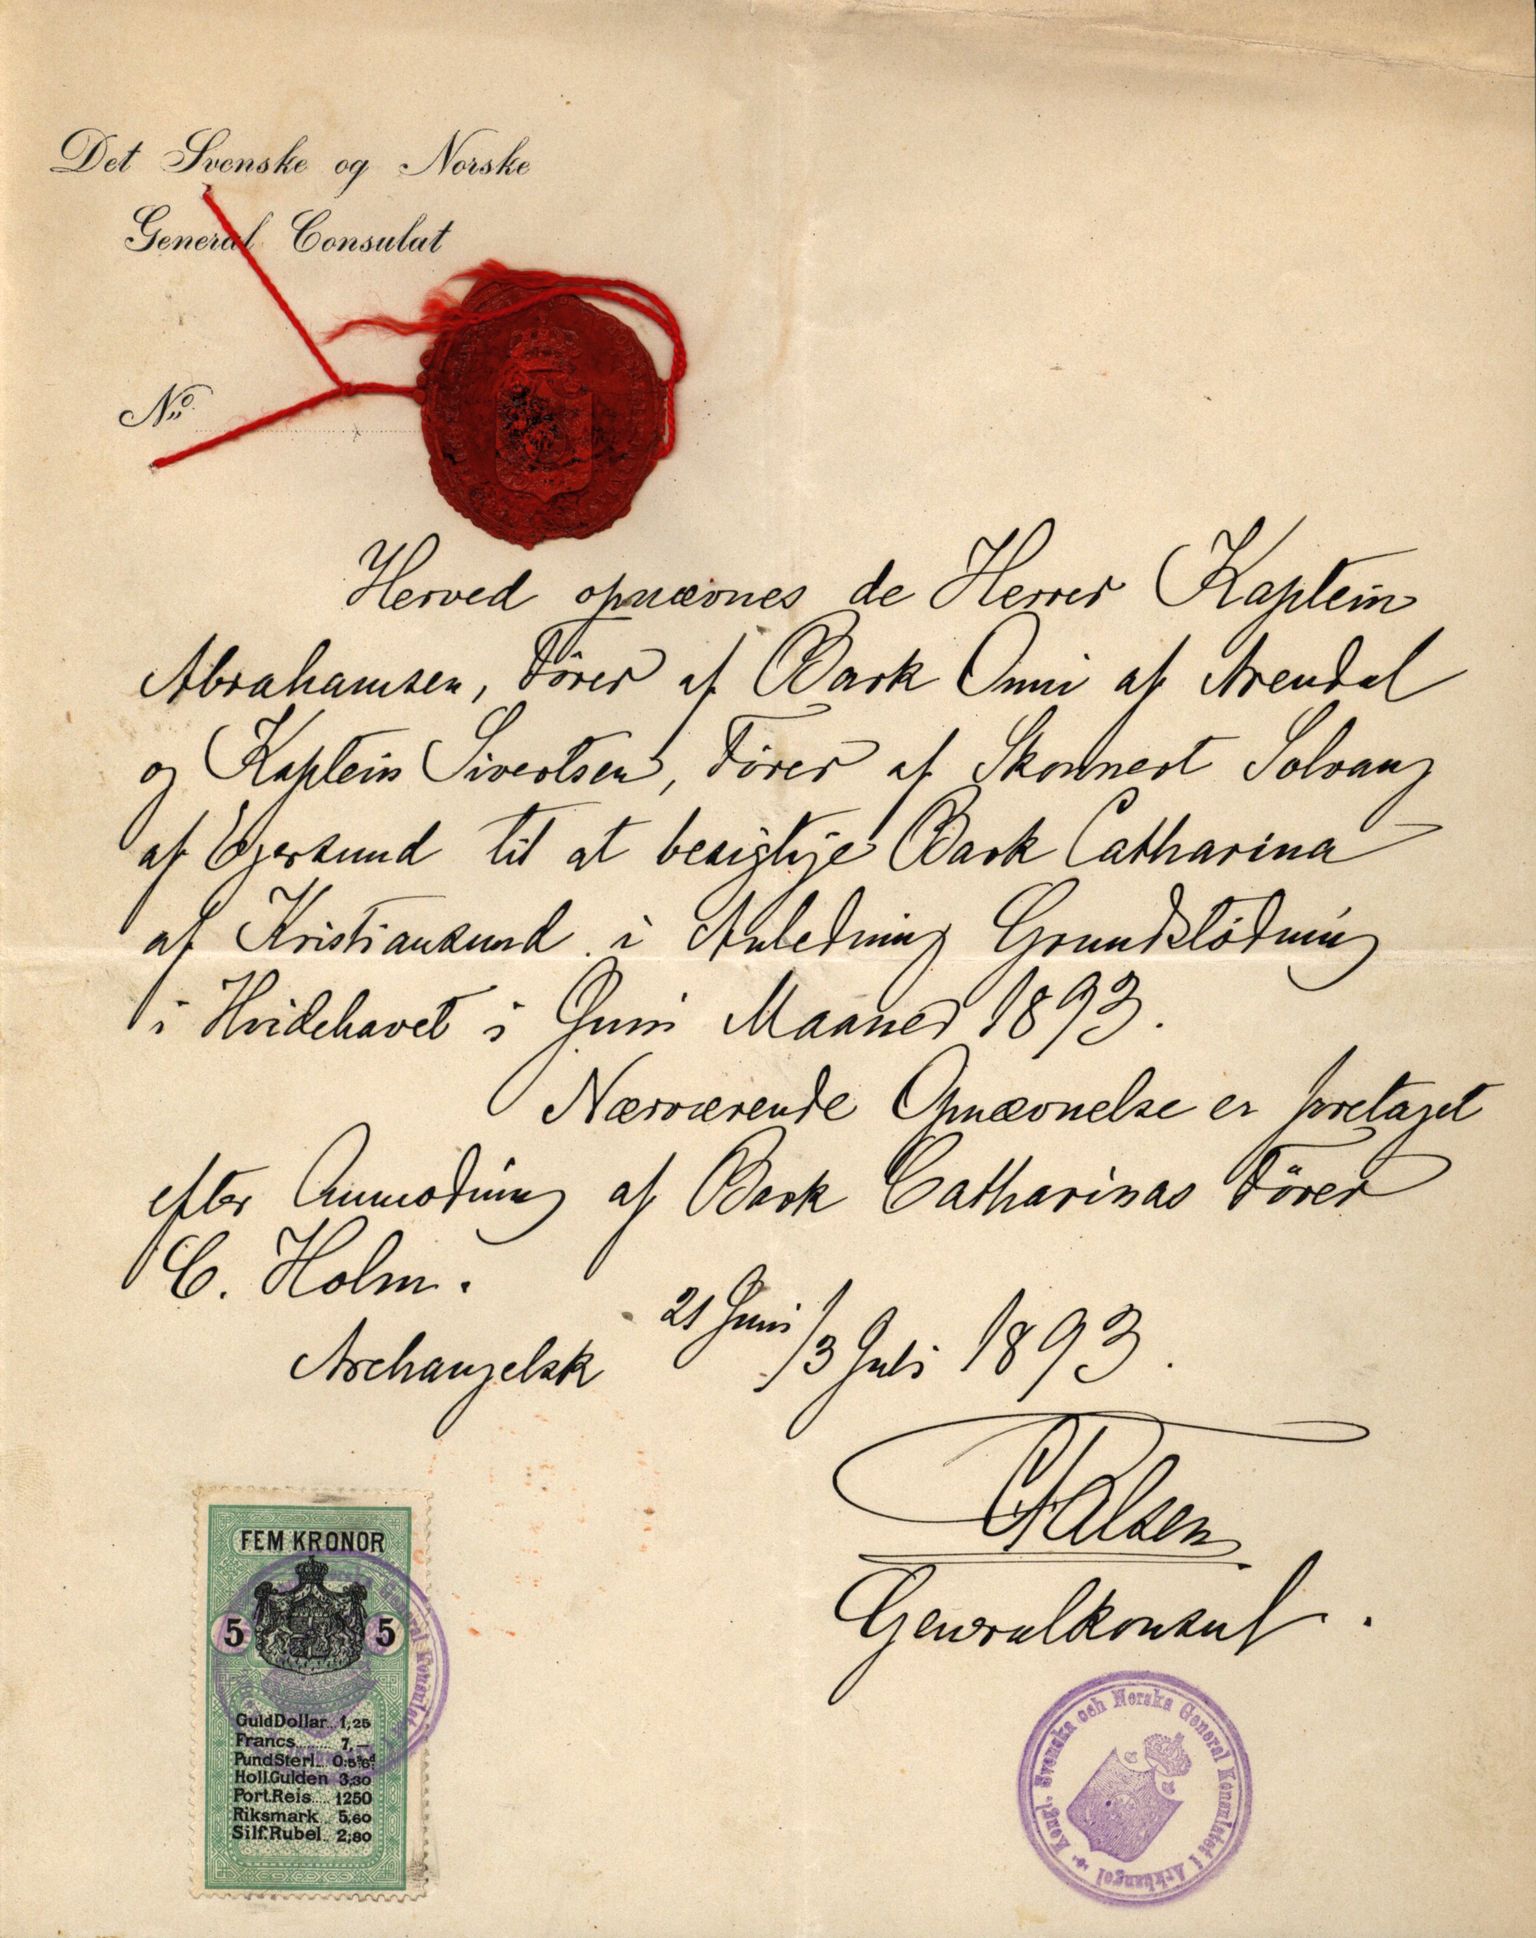 Det Svenske og Norske
General Consulat
No
Herved opnævnes de Herrer Kaptein
Abrahamsen, Fører af Bark Onni af Arendal
og Kaptein Sivertsen, Fører af Skonnert Solvang
af Egersund til at besigtige Bark Catharina
af Kristiansund i Anledning Grundstødning
i Hvidehavet i Juni Maaned 1893.
Nærværende Opnævnelse er foretaget
efter Anmodning af Bark Catharinas Fører
C. Holm.
Archangelsk 21 Juni/3 Juli 1893.
Falsen
Generalkonsul.
FEM KRONOR
5 5
GuldDollar.. 1,25
Francs........ 7,—
PundSterl... 0:5s6d
Holl.Gulden 3,30
Port.Reis.... 1250
Riksmark .. 5,60
Silf.Rubel.. 2,80
Kongl. Svenska och Norska General Konsulatet i Arkhangel